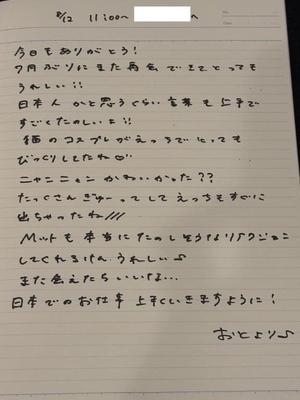 8/12 11:00〜 へ
今日もありがとう!
7月ぶりにまた再会できてとっても
うれしい!!
日本人かと思うぐらい言葉も上手で
すごくたのしいよ!!
猫のコスプレがえっちでとっても
びっくりしてたね♡
ニャンニャンかわいかった??
たっくさんぎゅーってしてえっちもすぐに
出ちゃったね///
Mットも本当にたのしそうなリアクション
してくれるけん、うれしい♪
また会えたらいいな...
日本でのお仕事上手くいきますように!
おとより♪